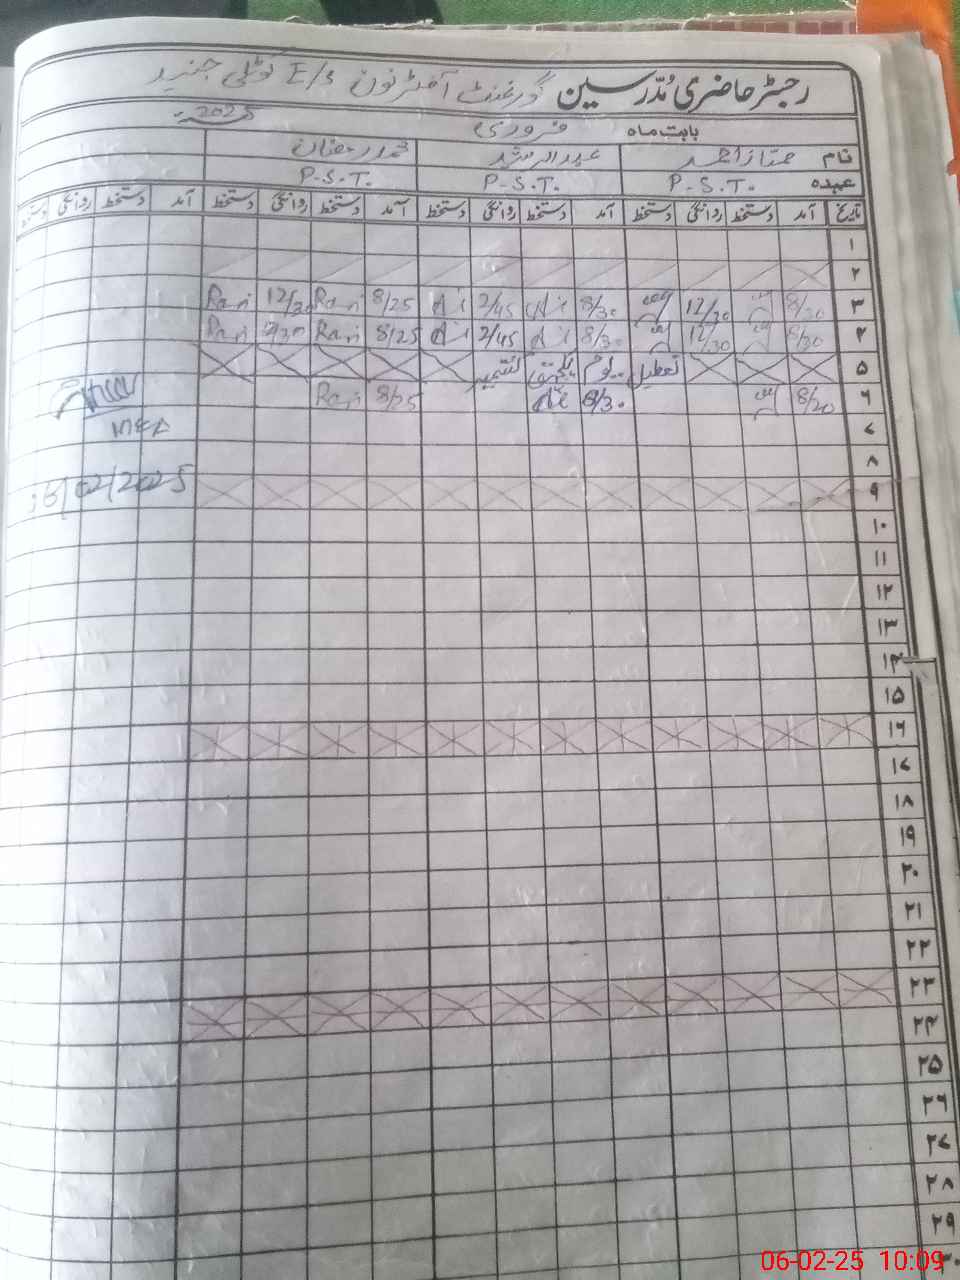 رجسٹر حاضری مُدرسین گورنمنٹ آفٹر نون E/S جنید
بابت ماہ فروری 2025
نام ممتاز احمد عبدالرشید محمد رمضان
عہدہ P.S.T. P.S.T. P.S.T.
تاریخ آمد دستخط روانگی دستخط آمد دستخط روانگی دستخط آمد دستخط روانگی دستخط آمد دستخط روانگی دستخط
۱
۲
۳ 8/30 12/30 8/30 2/45 8/25 12/30
۴ 8/30 12/30 8/30 2/45 8/25
۵ تعطیل یوم یکجہتی کشمیر
۶ 8/20 8/30 8/25
MEA
۷
۸
۹
06/02/2025
۱۰
۱۱
۱۲
۱۳
۱۴
۱۵
۱۶
۱۷
۱۸
۱۹
۲۰
۲۱
۲۲
۲۳
۲۴
۲۵
۲۶
۲۷
۲۸
۲۹
۳۰
06-02-25 10:09